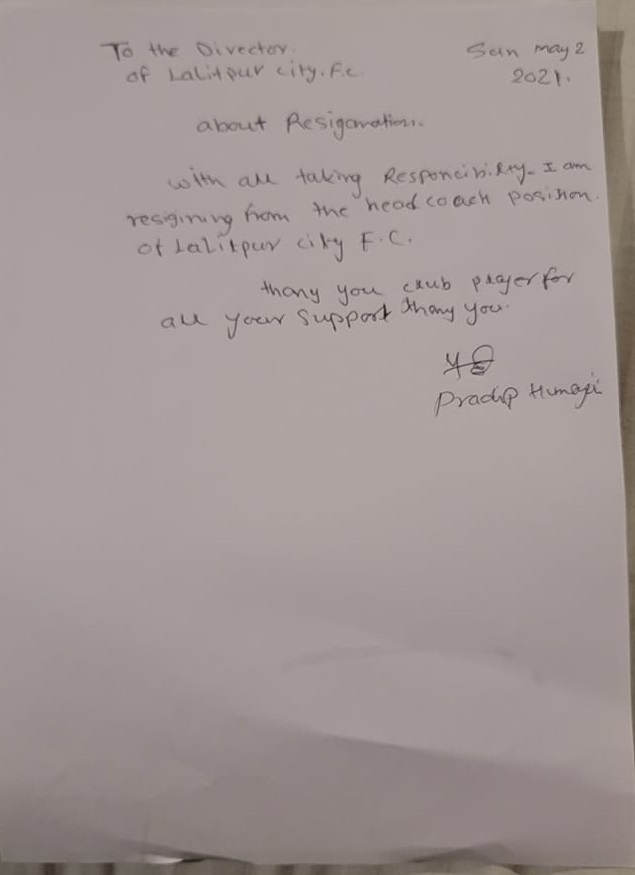 To the Director.
of Lalitpur city. F.c.
Sun may 2
2021.
about Resigomation.
with all taking Responcibility. I am
resigining from the head coach position.
of Lalitpur city F.C.
thany you club player for
all your support thany you.
Pradip Humagi